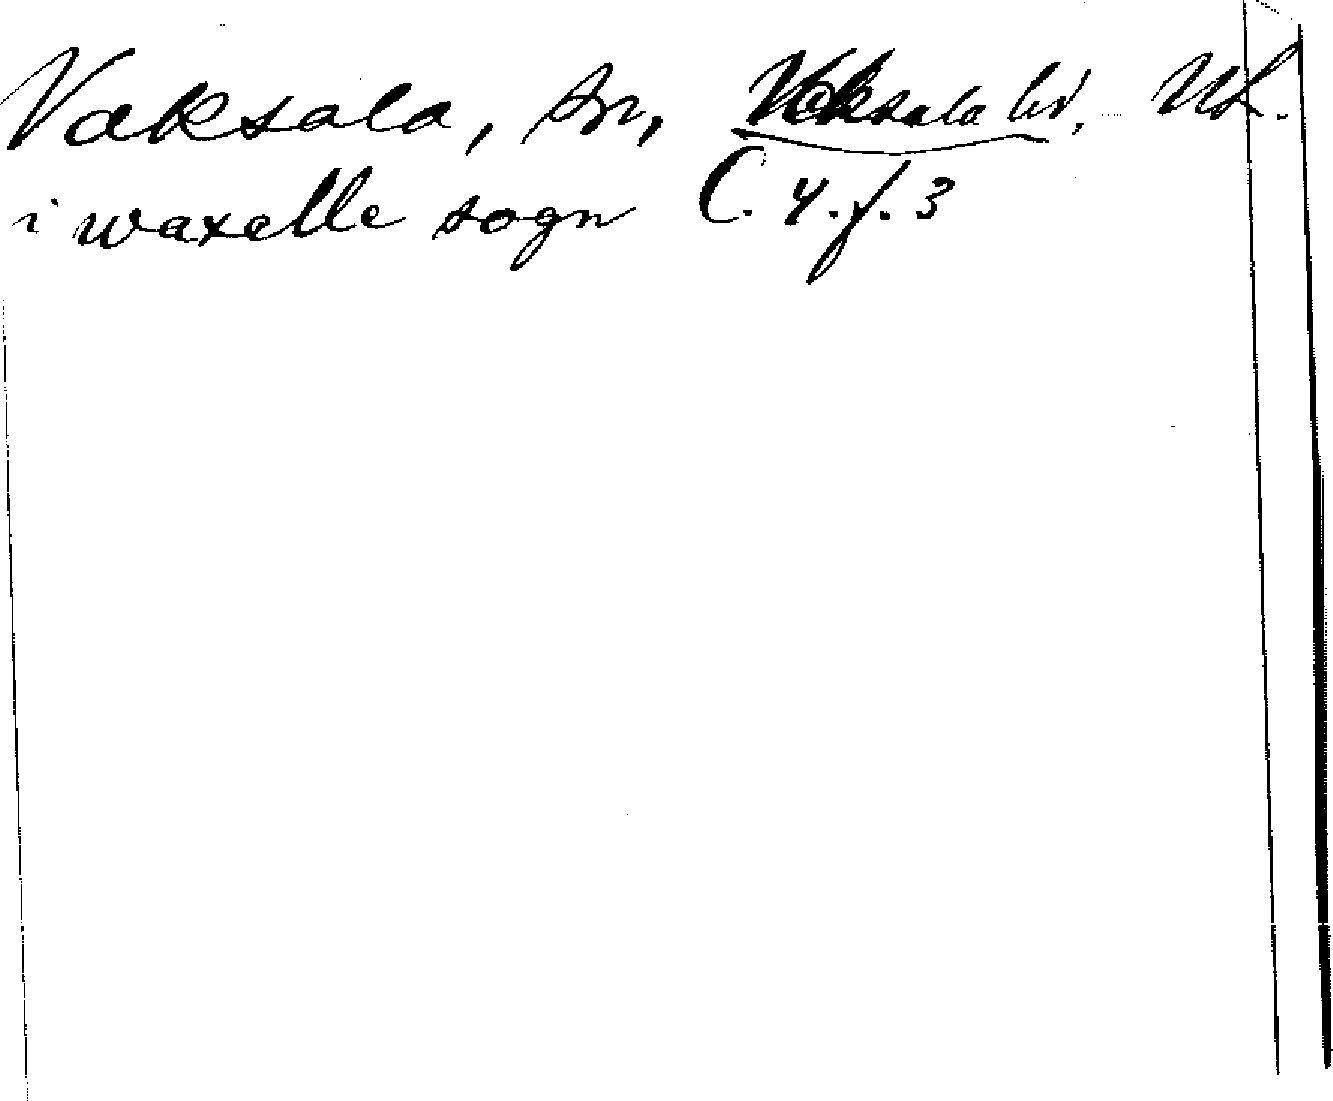 Vaksala, sn, Vaksala hd, Ul.
i waxalle sogn C. 4. f. 3